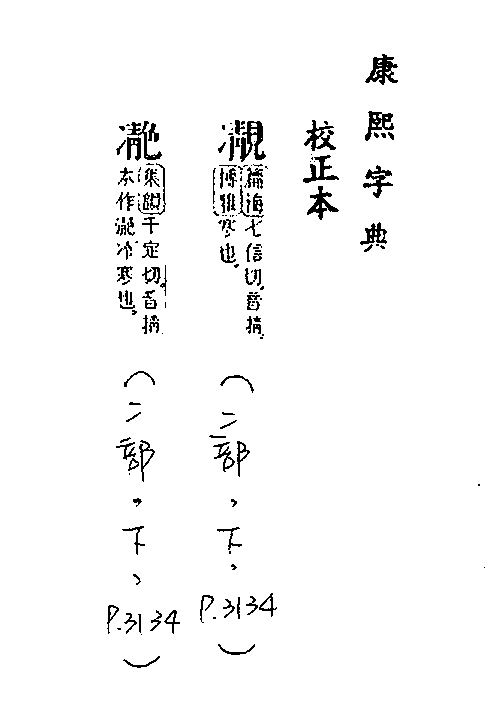 康熙字典
校正本
篇海七信切。音掅。
博雅寒也。
(二部,下,P.3134)
集韻千定切。音掅。
本作冷寒也。
(二部,下,P.3134)